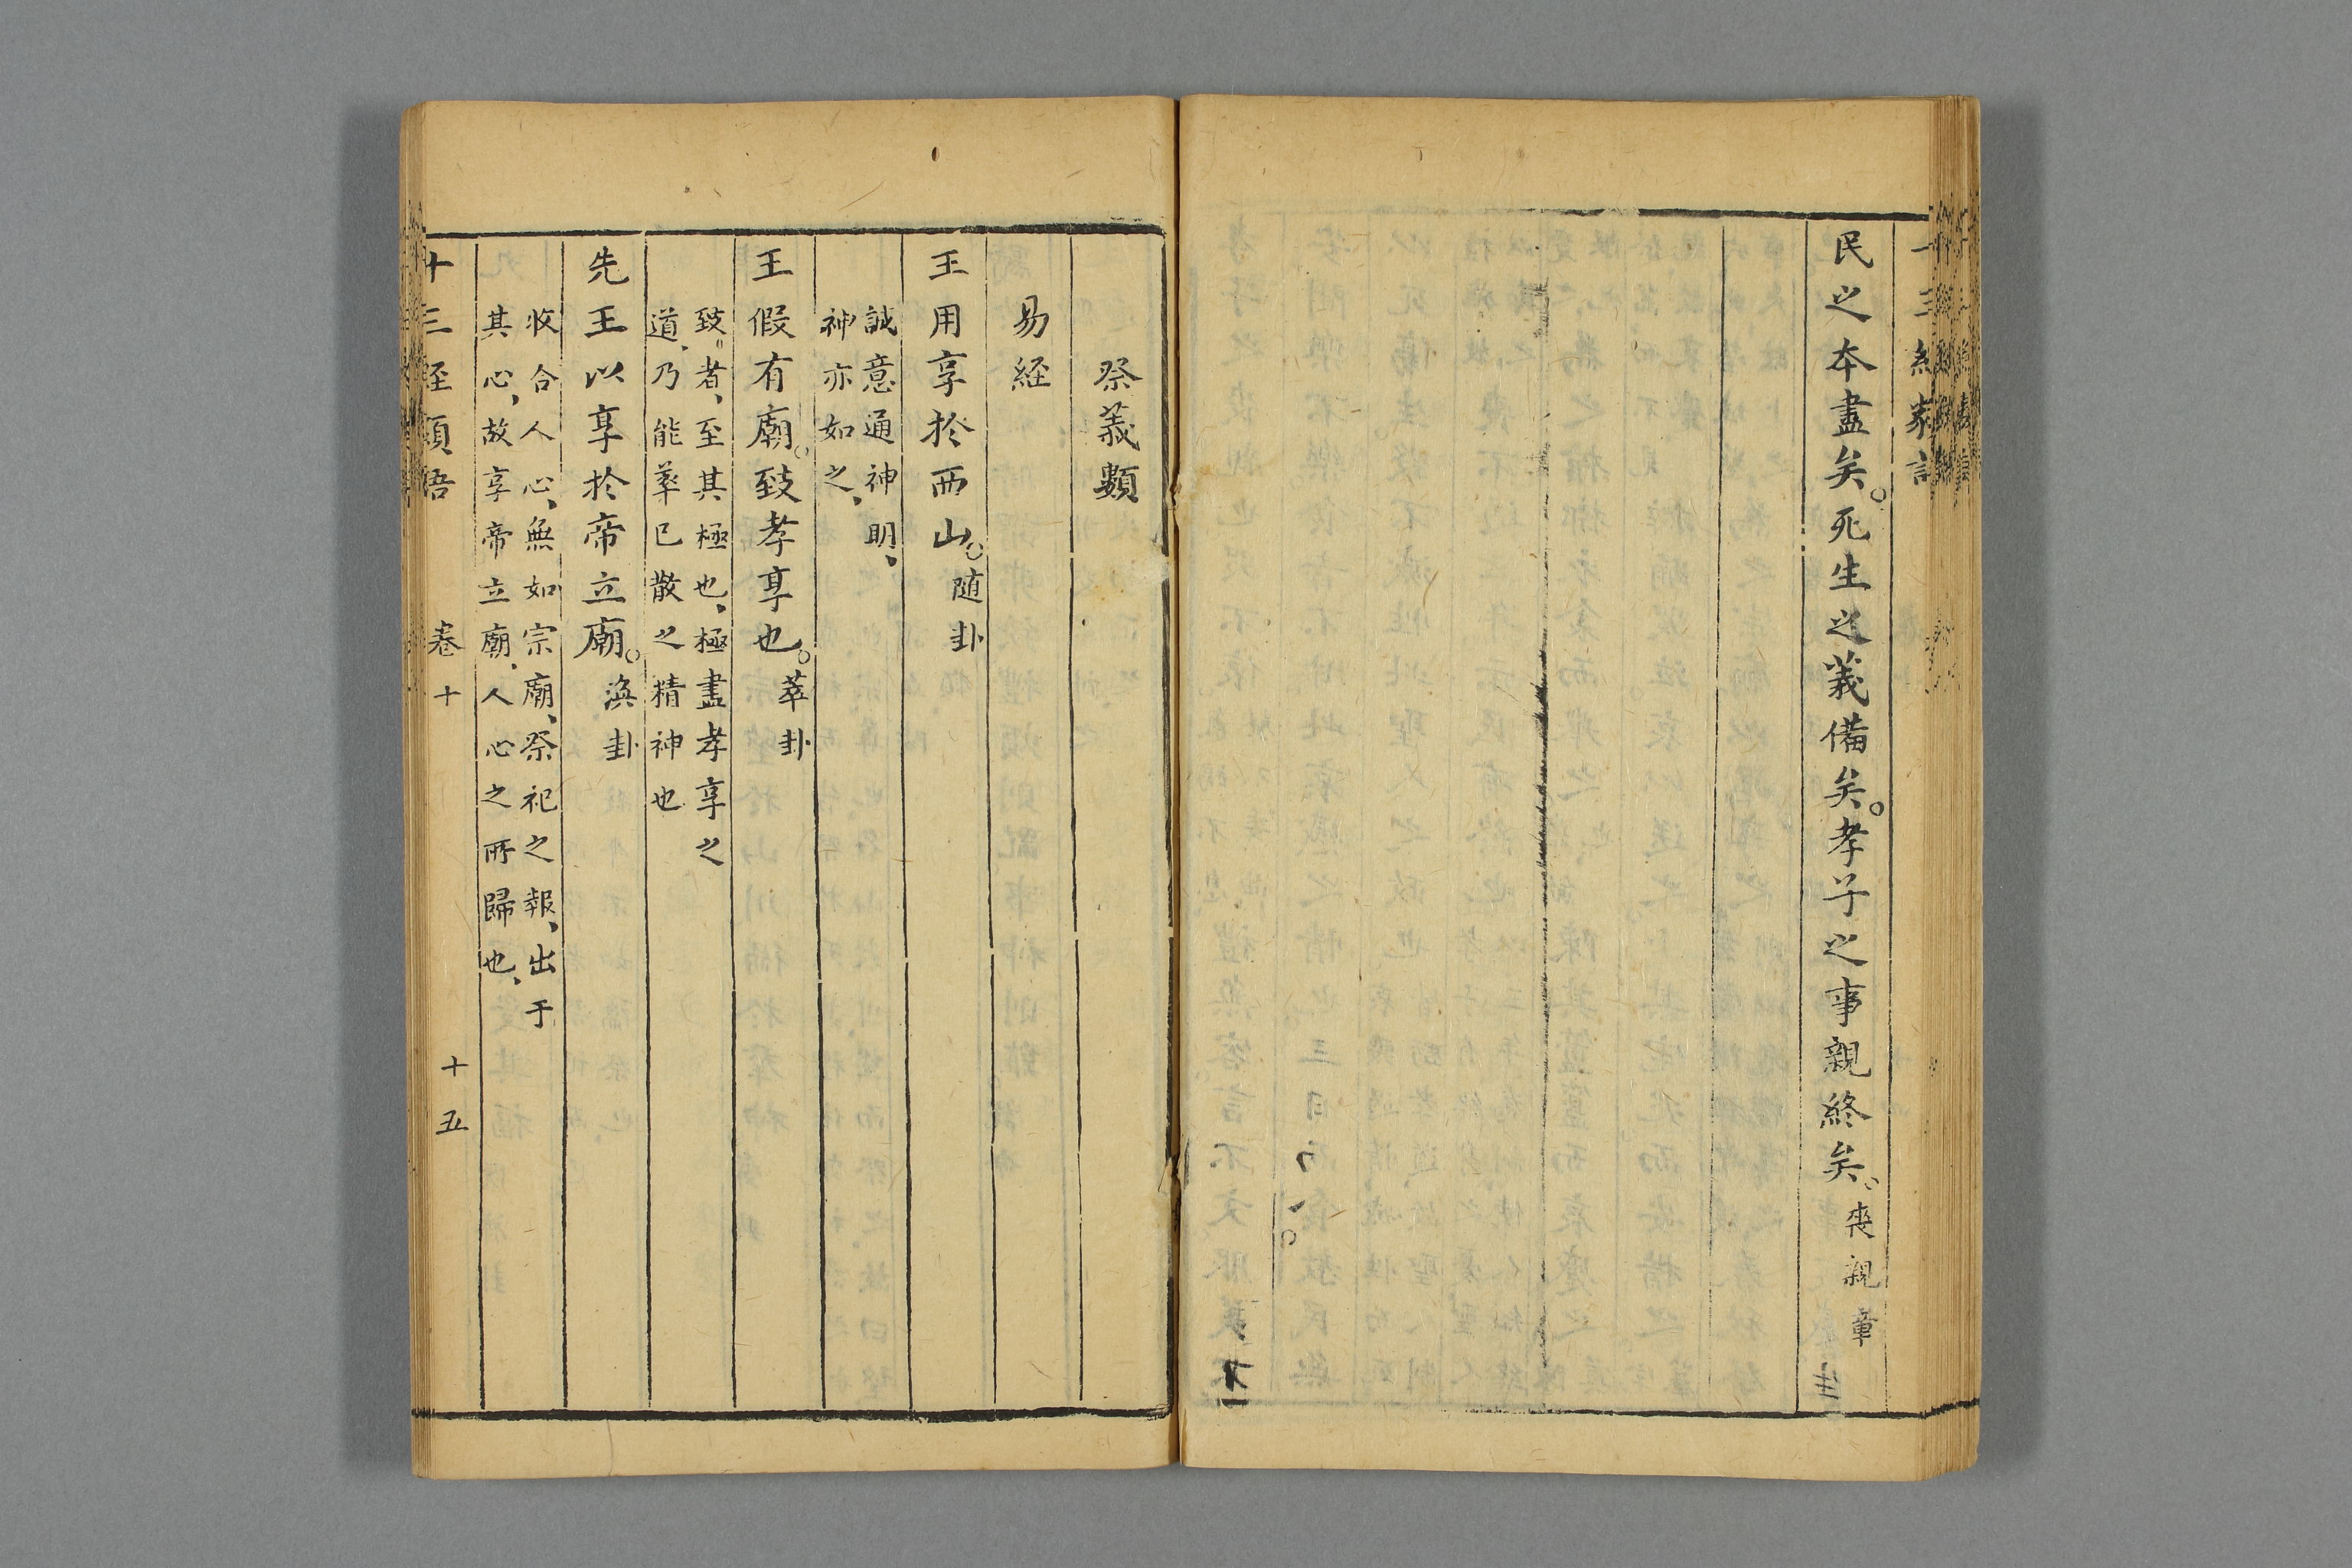 民之本盡矣。死生之義備矣。孝子之事親終矣、喪親章
祭義類
易経
王用享於西山。随卦
誠意通神明、
神亦如之、
王假有廟。致孝享也。萃卦
致。者、至其極也、極盡孝享之
道、乃能萃已散之精神也
先王以享於帝立廟。渙卦
收合人心、無如宗廟、祭祀之報、出于
其心、故享帝立廟、人心之所歸也、
十三經類語 卷十 十五